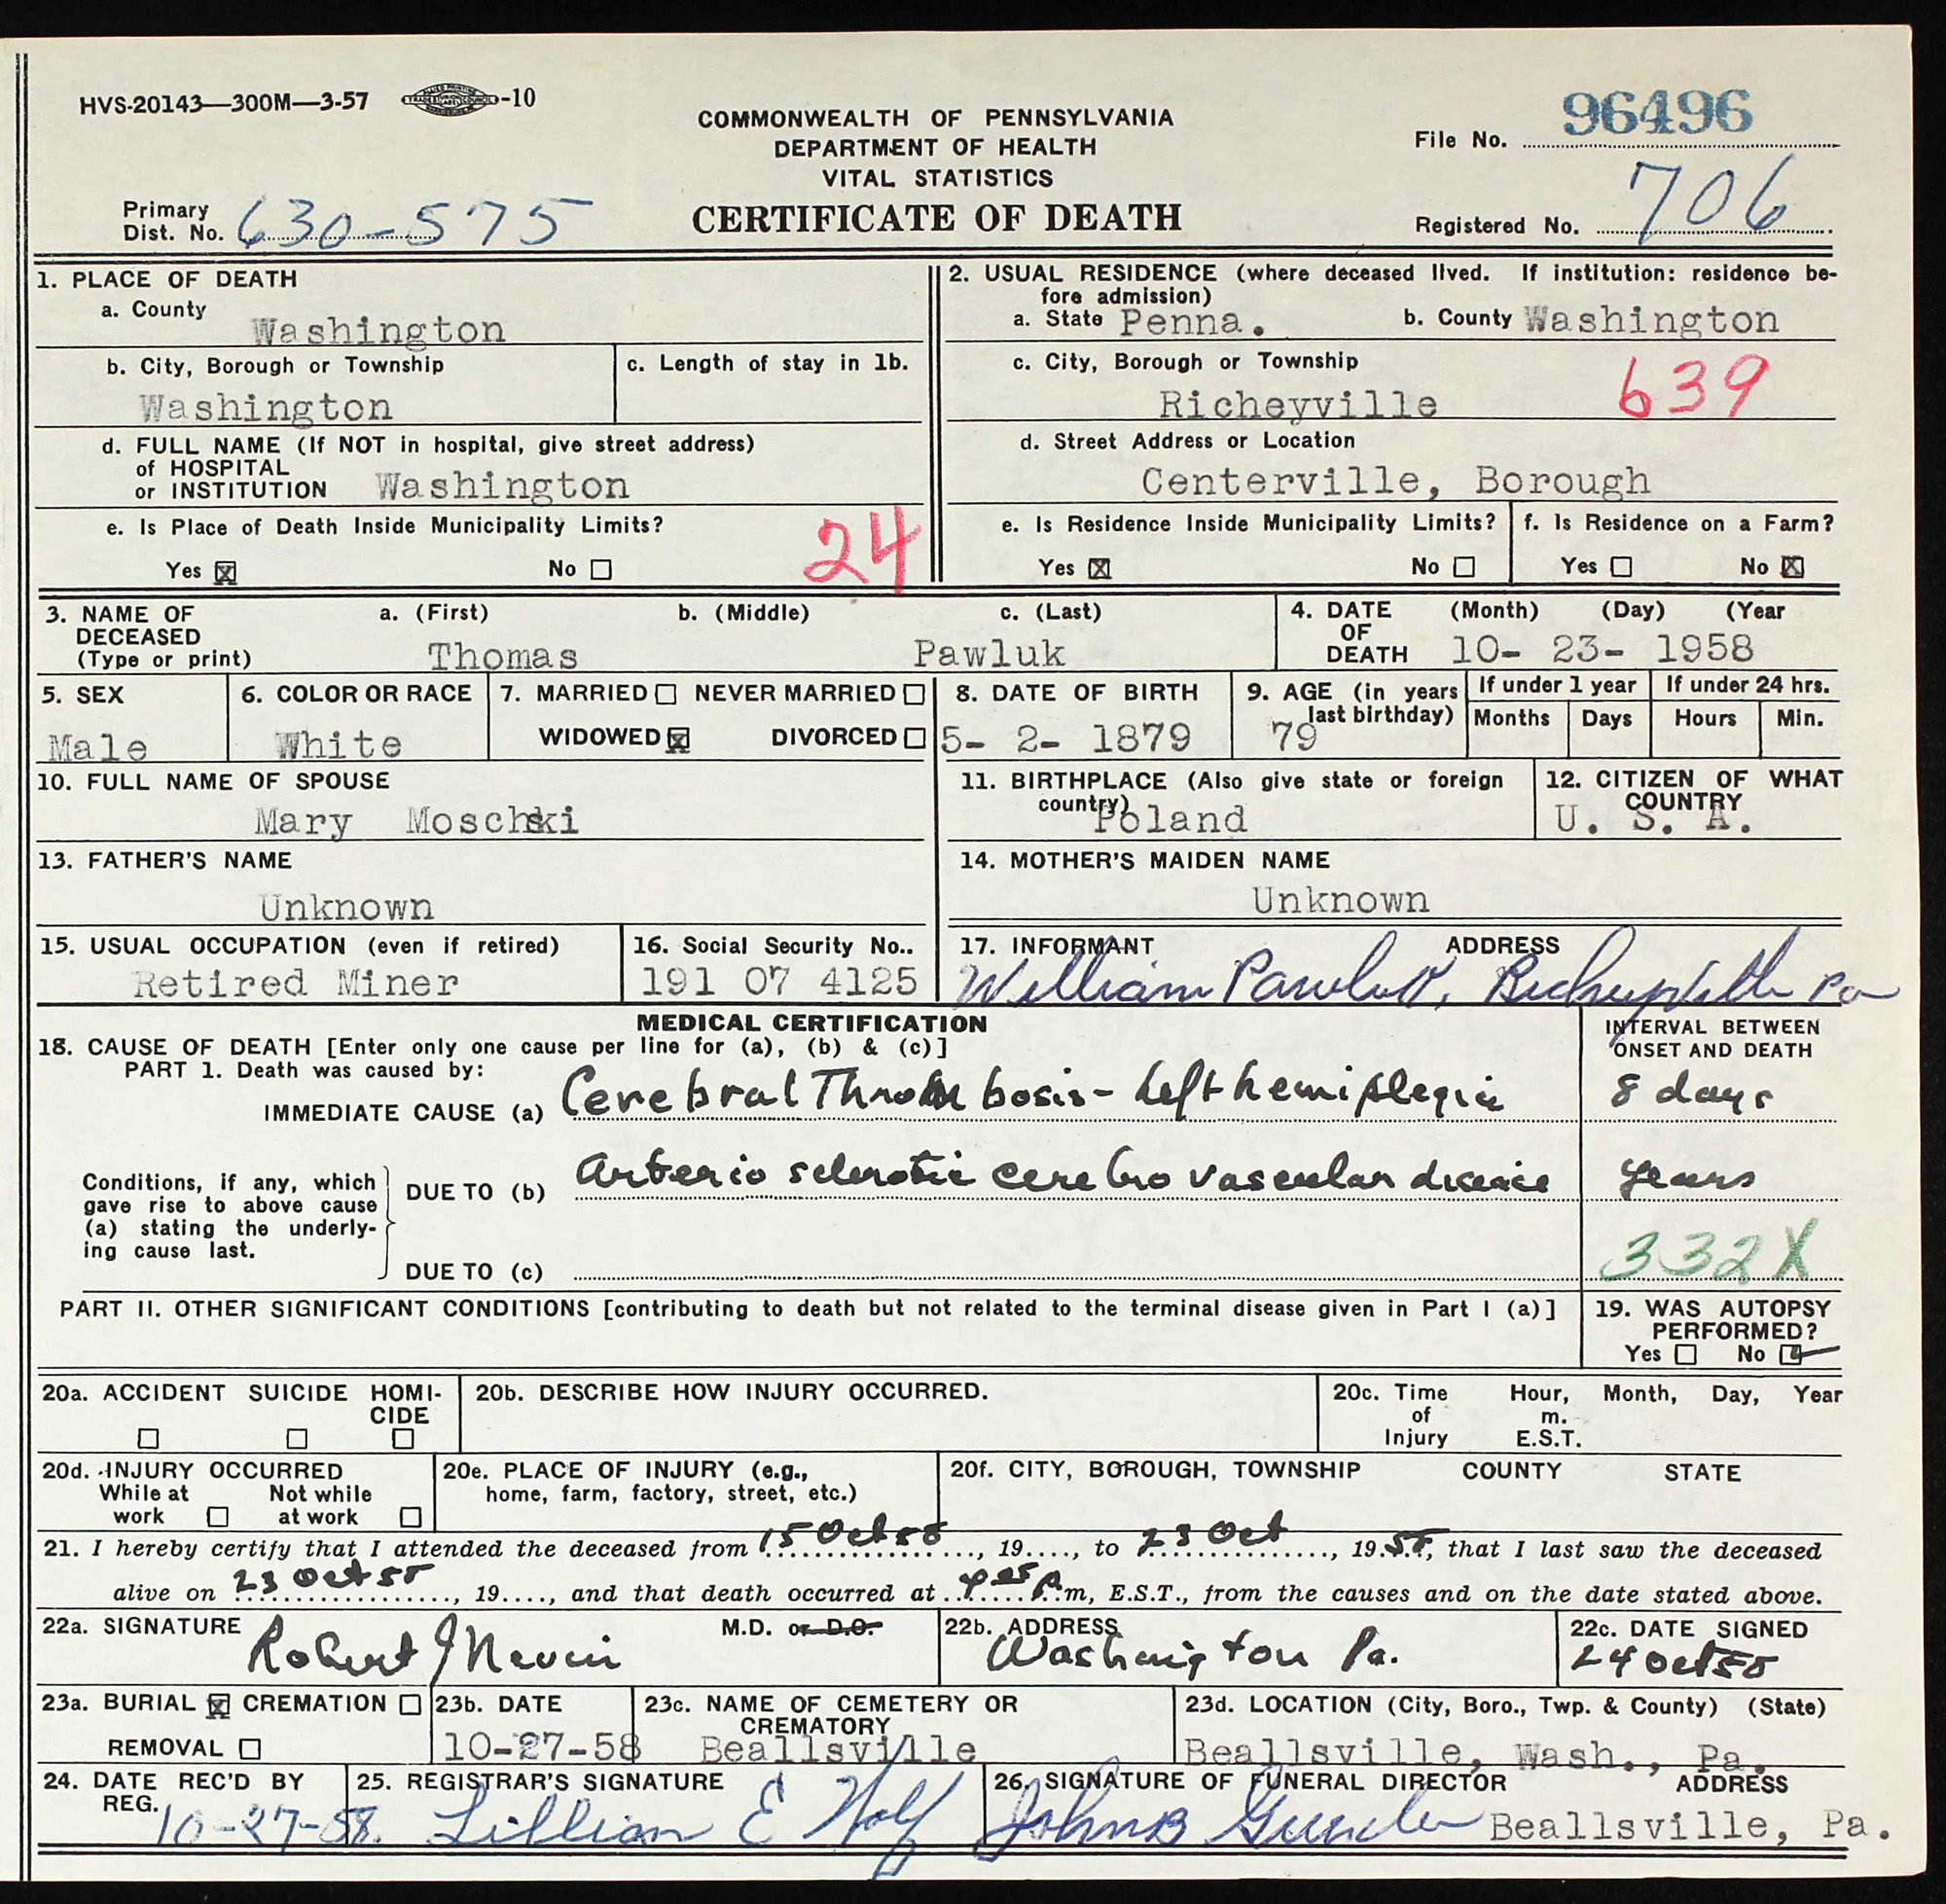 HVS-20143—300M—3-57 -10
COMMONWEALTH OF PENNSYLVANIA
DEPARTMENT OF HEALTH
VITAL STATISTICS
CERTIFICATE OF DEATH
File No. 96496
Primary Dist. No. 630-575
Registered No. 706
1. PLACE OF DEATH
a. County
Washington
b. City, Borough or Township
Washington
c. Length of stay in 1b.
d. FULL NAME (If NOT in hospital, give street address)
of HOSPITAL
or INSTITUTION Washington
e. Is Place of Death Inside Municipality Limits?
24
Yes ☒ No ☐
2. USUAL RESIDENCE (where deceased lived. If institution: residence be-
fore admission)
a. State Penna. b. County Washington
c. City, Borough or Township
Richeyville 639
d. Street Address or Location
Centerville, Borough
e. Is Residence Inside Municipality Limits?
Yes ☒ No ☐
f. Is Residence on a Farm?
Yes ☐ No ☒
3. NAME OF DECEASED (Type or print)
a. (First) b. (Middle) c. (Last)
Thomas Pawluk
4. DATE OF DEATH (Month) (Day) (Year
10- 23- 1958
5. SEX
Male
6. COLOR OR RACE
White
7. MARRIED ☐ NEVER MARRIED ☐
WIDOWED ☒ DIVORCED ☐
8. DATE OF BIRTH
5- 2- 1879
9. AGE (in years last birthday)
79
If under 1 year
Months Days
If under 24 hrs.
Hours Min.
10. FULL NAME OF SPOUSE
Mary
11. BIRTHPLACE (Also give state or foreign
country)
Poland
12. CITIZEN OF WHAT
COUNTRY
U. S. A.
13. FATHER'S NAME
Unknown
14. MOTHER'S MAIDEN NAME
Unknown
15. USUAL OCCUPATION (even if retired)
Retired Miner
16. Social Security No..
191 07 4125
17. INFORMANT ADDRESS
William Pawluk, Richeyville Pa
MEDICAL CERTIFICATION
18. CAUSE OF DEATH [Enter only one cause per line for (a), (b) & (c)]
PART 1. Death was caused by:
INTERVAL BETWEEN
ONSET AND DEATH
IMMEDIATE CAUSE (a) Cerebral Thrombosis - Left hemiplegia 8 days
Conditions, if any, which
gave rise to above cause
(a) stating the underly-
ing cause last.
DUE TO (b) Arterio sclerotic cerebro vascular disease years
DUE TO (c) 332X
PART II. OTHER SIGNIFICANT CONDITIONS [contributing to death but not related to the terminal disease given in Part I (a)]
19. WAS AUTOPSY
PERFORMED?
Yes ☐ No ☑
20a. ACCIDENT SUICIDE HOMI-
CIDE
☐ ☐ ☐
20b. DESCRIBE HOW INJURY OCCURRED.
20c. Time of Injury Hour, Month, Day, Year
m.
E.S.T.
20d. INJURY OCCURRED
While at work ☐ Not while at work ☐
20e. PLACE OF INJURY (e.g.,
home, farm, factory, street, etc.)
20f. CITY, BOROUGH, TOWNSHIP COUNTY STATE
21. I hereby certify that I attended the deceased from 15 Oct 58, 19...., to 23 Oct, 1958, that I last saw the deceased
alive on 23 Oct 58, 19...., and that death occurred at P.m, E.S.T., from the causes and on the date stated above.
22a. SIGNATURE Robert J M.D. or D.O.
22b. ADDRESS
Washington Pa.
22c. DATE SIGNED
24 Oct 58
23a. BURIAL ☒ CREMATION ☐
REMOVAL ☐
23b. DATE
10-27-58
23c. NAME OF CEMETERY OR
CREMATORY
Beallsville
23d. LOCATION (City, Boro., Twp. & County) (State)
Beallsville, Wash., Pa.
24. DATE REC'D BY
REG.
10-27-58.
25. REGISTRAR'S SIGNATURE
Lillian E
26. SIGNATURE OF FUNERAL DIRECTOR ADDRESS
John B Beallsville, Pa.